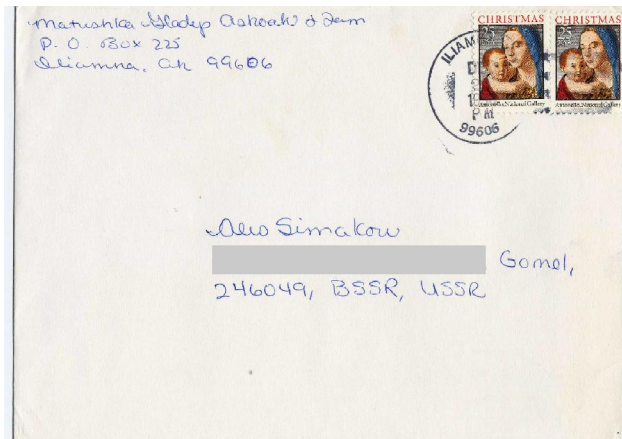 Matushka Gladys Askoak & Fam
P. O. Box 225
Iliamna, AK 99606
CHRISTMAS CHRISTMAS
25 25
USA
Antonello, National Gallery Antonello, National Gallery
ILIAM
D
PM
99606
Simakow
Gomel,
246049, BSSR, USSR